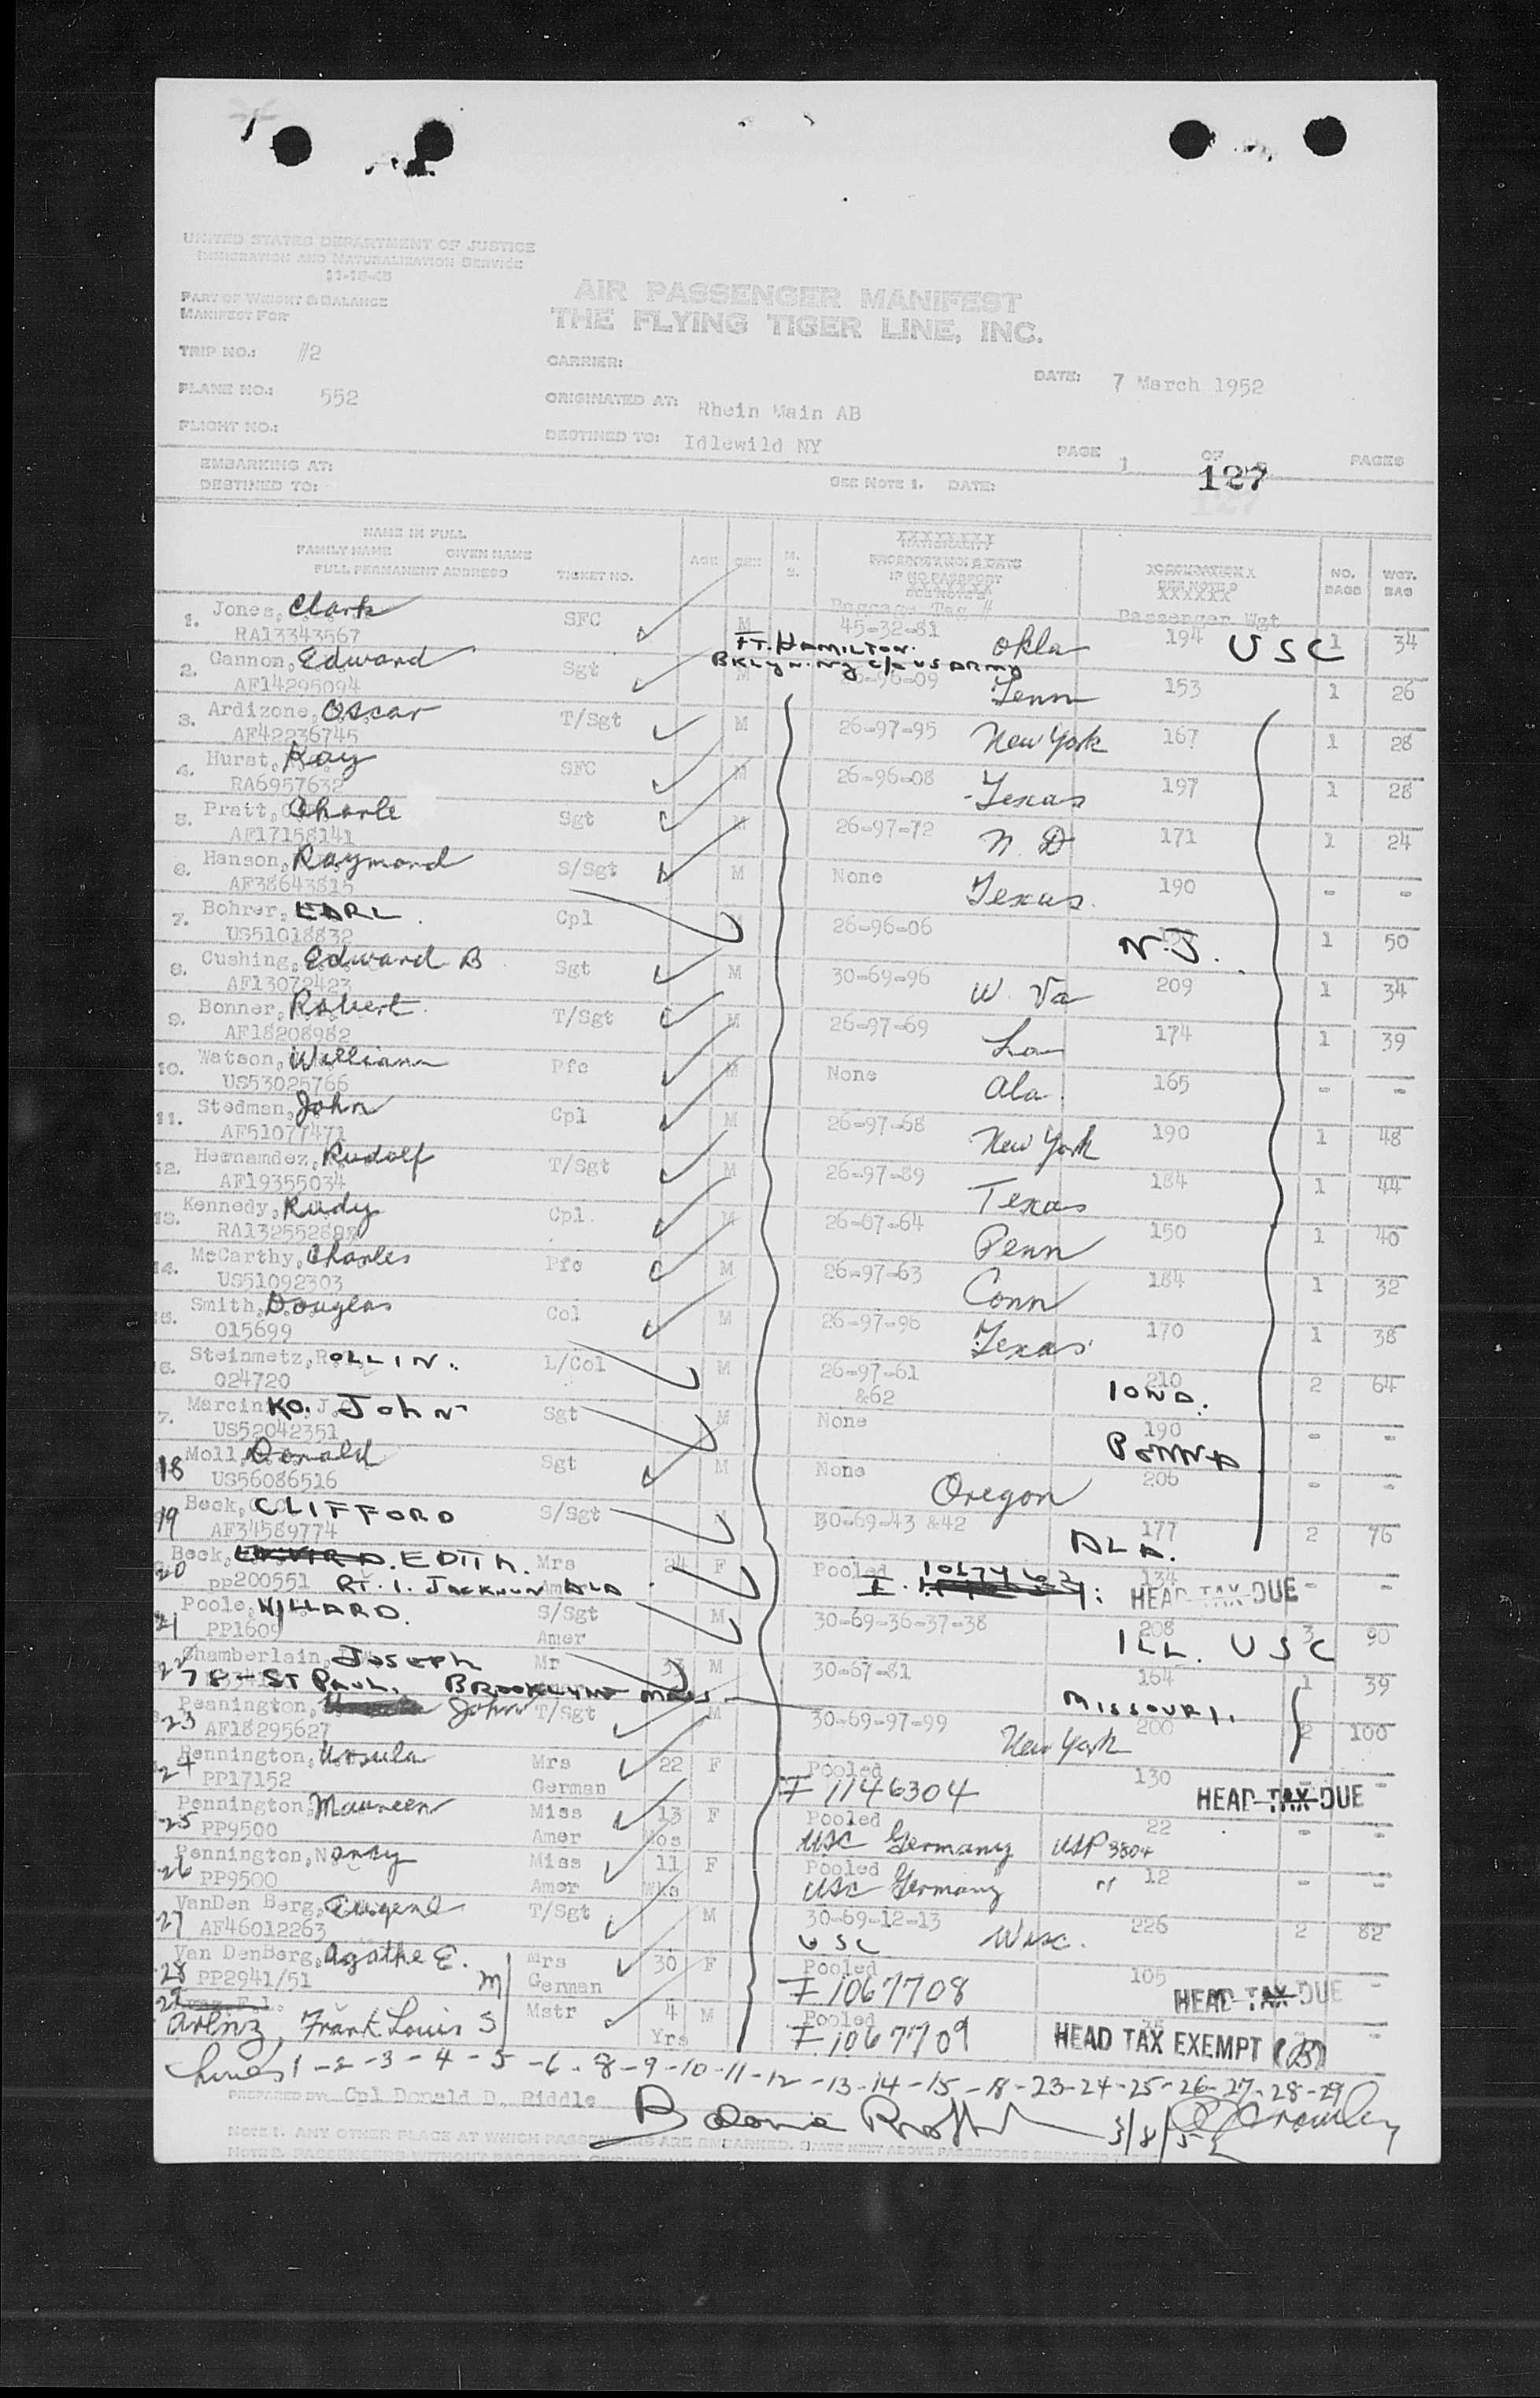 UNITED STATES DEPARTMENT OF JUSTICE
IMMIGRATION AND NATURALIZATION SERVICE
11-15-48
PART OF WEIGHT & BALANCE
MANIFEST FOR
AIR PASSENGER MANIFEST
THE FLYING TIGER LINE, INC.
TRIP NO.: #2
CARRIER:
DATE: 7 March 1952
PLANE NO.: 552
ORIGINATED AT: Rhein Main AB
FLIGHT NO.:
DESTINED TO: Idlewild NY
PAGE 1 OF PAGES
127
EMBARKING AT:
DESTINED TO:
SEE NOTE 1. DATE:
NAME IN FULL
FAMILY NAME GIVEN NAME
FULL PERMANENT ADDRESS
TICKET NO. AGE SEX M. S.
NATIONALITY
IF NO PASSPORT
Baggage Tag #
Passenger Wgt
NO. BAGS WGT. BAG
1. Jones, Clark SFC M 45-32-81 Okla 194 USC 1 34
RA13343567
FT. HAMILTON.
BKLYN. NY C/O US ARMY
2. Cannon, Edward Sgt M 26-96-09 Tenn 153 1 26
AF14295094
3. Ardizone, Oscar T/Sgt M 26-97-95 New York 167 1 28
AF42236745
4. Hurst, Ray SFC M 26-96-08 Texas 197 1 28
RA6957632
5. Pratt, Charle Sgt M 26-97-72 N. D 171 1 24
AF17158141
6. Hanson, Raymond S/Sgt M None Texas 190 - -
AF38643815
7. Bohrer, EARL Cpl 26-96-06 N.J. 1 50
US51018832
8. Cushing, Edward B Sgt M 30-69-96 W. Va 209 1 34
AF13072423
9. Bonner, Robert T/Sgt M 26-97-69 La 174 1 39
AF18208982
10. Watson, William Pfc M None Ala 165 - -
US53025766
11. Stedman, John Cpl M 26-97-68 New York 190 1 48
AF51077471
12. Hernamdez, Rudolf T/Sgt M 26-97-89 Texas 184 1 44
AF19355034
13. Kennedy, Rudy Cpl M 26-67-64 Penn 150 1 40
14. McCarthy, Charles Pfc M 26-97-63 Conn 184 1 32
US51092303
15. Smith, Douglas Col M 26-97-96 Texas 170 1 38
015699
16. Steinmetz, ROLLIN. L/Col M 26-97-61 210 2 64
024720 &62
17. MarcinKO, J. John Sgt M None 190 - -
US52042351
18 Moll, Donald Sgt M None Oregon 206 - -
US56086516
19 Beck, CLIFFORD S/Sgt M 30-69-43 &42 ALA. 177 2 76
AF34589774
20 Beck, EDITH. Mrs 24 F Pooled 134 - -
pp200551 RT. 1. JACKSON ALA Amer HEAD TAX DUE
21 Poole, WILLARD. S/Sgt M 30-69-36-37-38 208 3 90
PP1609 Amer ILL. USC
22 Chamberlain, Joseph Mr 33 M 30-67-81 164 1 39
78 - ST PAUL. BROOKLYNE MASS MISSOURI.
23 Pennington, John T/Sgt M 30-69-97-99 New York 200 2 100
AF18295627
24 Pennington, Ursula Mrs 22 F Pooled 130 -
PP17152 German I 1146304 HEAD TAX DUE
25 Pennington, Maureen Miss 13 F Pooled 22 - -
PP9500 Amer Mos USC Germany USP 3804
26 Pennington, Nancy Miss 11 F Pooled 12 - -
PP9500 Amer Wks USC Germany "
27 VanDen Berg, Eugene T/Sgt M 30-69-12-13 226 2 82
AF46012263 USC Wisc.
28 Van DenBerg, Agathe E. Mrs 30 F Pooled 105 -
PP2941/51 M German I 1067708 HEAD TAX DUE
29 Arenz, Frank Louis S Mstr 4 Yrs M Pooled
I 1067709 HEAD TAX EXEMPT (B)
Lines 1-2-3-4-5-6-8-9-10-11-12-13-14-15-18-23-24-25-26-27-28-29
PREPARED BY: Cpl Donald D. Riddle
3/8/52
NOTE 1. ANY OTHER PLACE AT WHICH PASSENGERS ARE EMBARKED, STATE NEXT ABOVE PASSENGERS